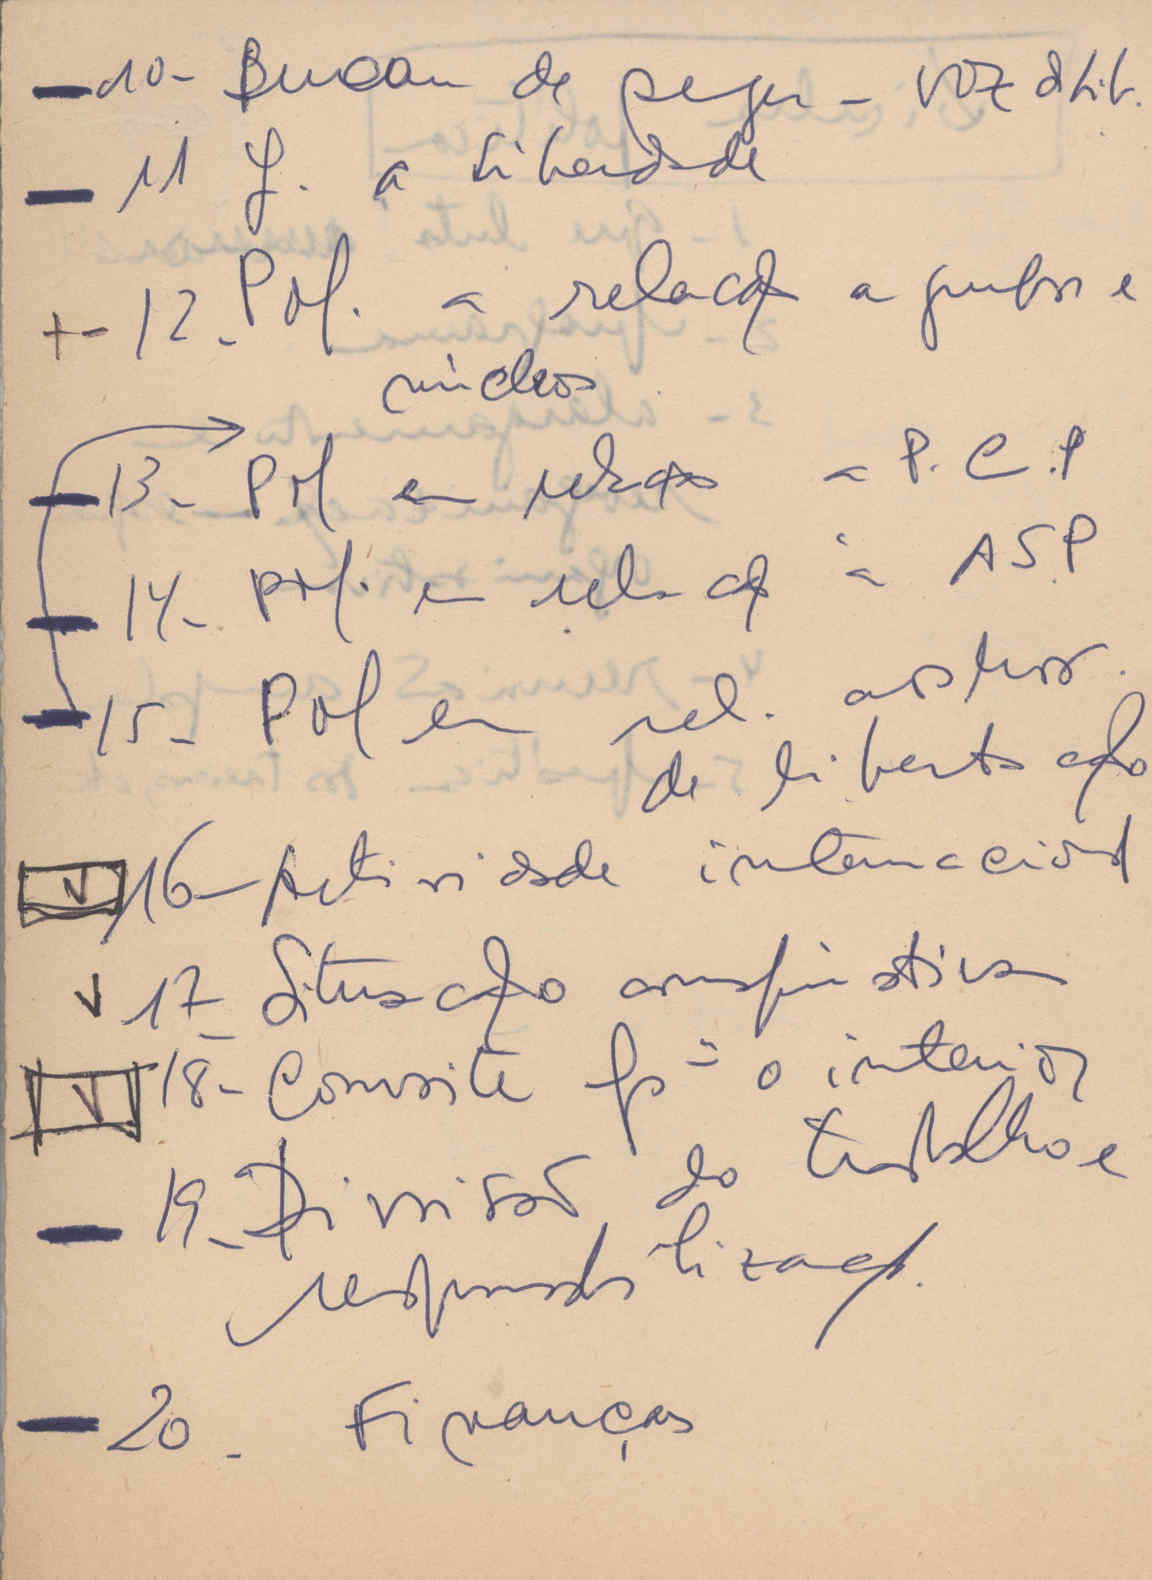 10- de - VOZ d Lib.
11 J. a Liberdade
+- 12- Pol. a relação a grupos e
núcleos
13- Pol em relação a P.C.P
14- Pol. em relação à ASP
15- Pol em rel. aos
de libertação
16- Actividade internacional
17- Situação conspirativa
18- Comité pª o interior
19- Divisão do trabalho e
responsabilizaç.
20- Finanças